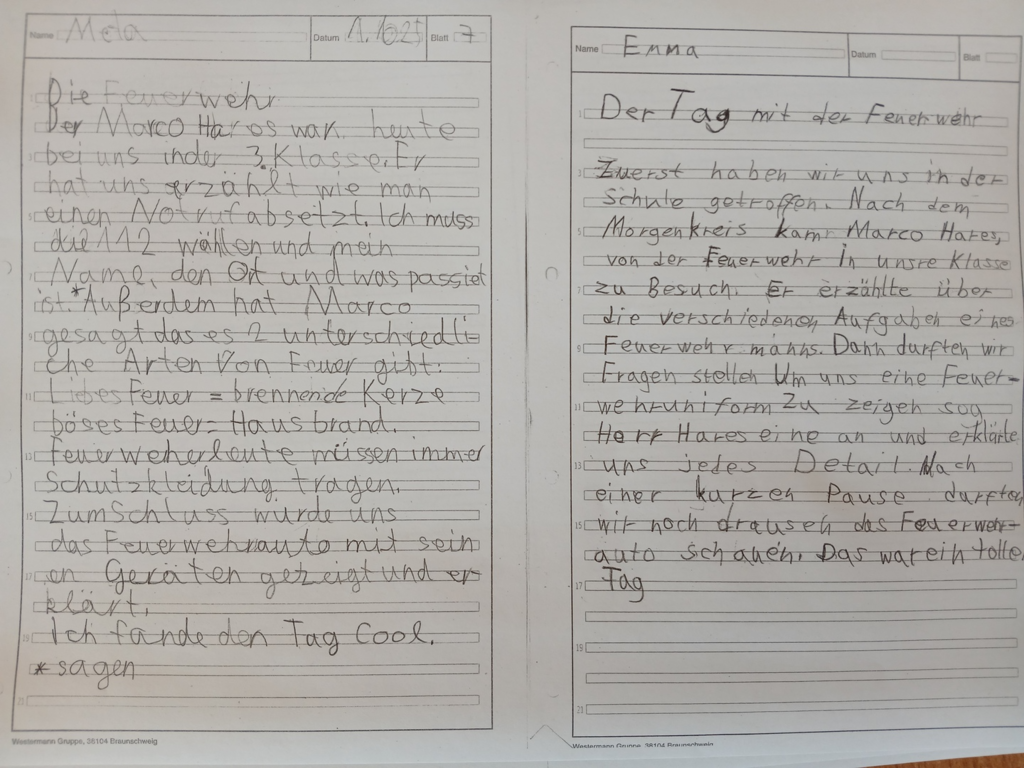 Name Mela Datum 1.10.25 Blatt 7
Die Feuerwehr
Der Marco Hares war heute
bei uns inder 3. Klasse. Er
hat uns erzählt wie man
einen Notruf absetzt. Ich muss
die 112 wählen und mein
Name, den Ort und was passiet
ist.*Außerdem hat Marco
gesagt das es 2 unterschiedli-
che Arten Von Feuer gibt:
Liebes Feuer = brennende Kerze
böses Feuer = Hausbrand.
Feuerweherleute müssen immer
Schutzkleidung tragen.
Zum Schluss wurde uns
das Feuerwehrauto mit sein
en Geräten gezeigt und er-
klärt.
Ich fande den Tag Cool.
* sagen
Westermann Gruppe, 38104 Braunschweig
Name Emma Datum Blatt
Der Tag mit der Feuerwehr
Zuerst haben wir uns in der
Schule getroffen. Nach dem
Morgenkreis kam Marco Hares,
von der Feuerwehr in unsre Klasse
zu Besuch. Er erzählte über
die verschiedenen Aufgaben eines
Feuerwehrmanns. Dann durften wir
Fragen stellen Um uns eine Feuer-
wehruniform Zu zeigen zog
Herr Hares eine an und erklärte
uns jedes Detail. Nach
einer kurzen Pause durften
wir noch drausen das Feuerwehr-
auto schauen. Das war ein tolle
Tag
Westermann Gruppe, 38104 Braunschweig